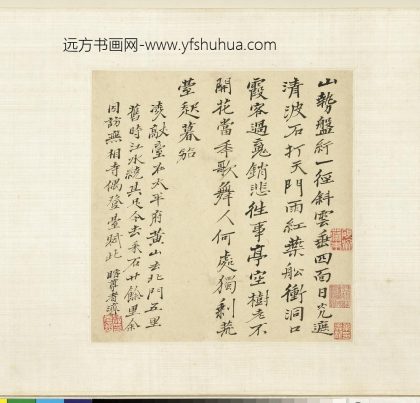 远方书画网-www.yfshuhua.com
山勢盤紆一徑斜雲垂四面日光遮
清波石打天門雨紅葉船衝洞口
霞客過魂銷悲往事亭空樹老不
開花當年歌舞人何處獨剩荒
臺起暮笳
凌歊臺在太平府黄山去北門五里
舊時江水繞其足今去采石廿餘里余
因訪無相寺偶登臺賦此